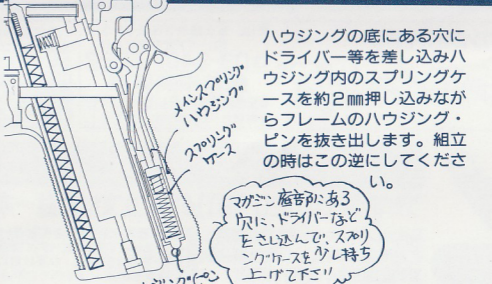 ハウジングの底にある穴に
ドライバー等を差し込みハ
ウジング内のスプリングケ
ースを約2㎜押し込みなが
らフレームのハウジング・
ピンを抜き出します。組立
の時はこの逆にしてくださ
い。
メインスプリング
ハウジング
スプリング
ケース
マガジン底部にある
穴に、ドライバーなど
をさし込んで、スプリ
ングケースを少し持ち
上げて下さい
ハウジングピン